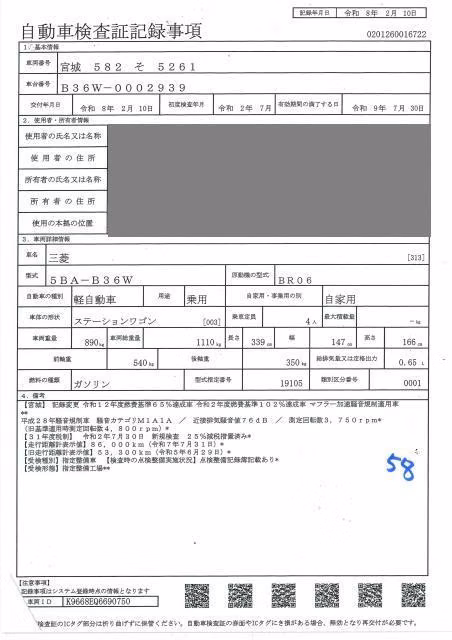 記録年月日 令和 8年 2月 10日
自動車検査証記録事項
0201260016722
1. 基本情報
車両番号 宮城 582 そ 5261
車台番号 B36W-0002939
交付年月日 令和 8年 2月 10日 初度検査年月 令和 2年 7月 有効期間の満了する日 令和 9年 7月 30日
2. 使用者・所有者情報
使用者の氏名又は名称
使用者の住所
所有者の氏名又は名称
所有者の住所
使用の本拠の位置
3. 車両詳細情報
車名 三菱 [313]
型式 5BA-B36W 原動機の型式 BR06
自動車の種別 軽自動車 用途 乗用 自家用・事業用の別 自家用
車体の形状 ステーションワゴン [003] 乗車定員 4人 最大積載量 -kg
車両重量 890kg 車両総重量 1110kg 長さ 339cm 幅 147cm 高さ 166cm
前軸重 540kg 後軸重 350kg 総排気量又は定格出力 0.65L
燃料の種類 ガソリン 型式指定番号 19105 類別区分番号 0001
4. 備考
【宮城】 記録変更 令和12年度燃費基準65%達成車 令和2年度燃費基準102%達成車 マフラー加速騒音規制適用車
**
平成28年騒音規制車 騒音カテゴリM1A1A / 近接排気騒音値76dB / 測定回転数3,750rpm*
(旧基準適用時測定回転数4,800rpm)*
【31年度税制】 令和2年7月30日 新規検査 25%減税措置済み*
【走行距離計表示値】86,000km(令和7年7月31日)*
【旧走行距離計表示値】53,300km(令和5年6月29日)*
【受検種別】指定整備車 【検査時の点検整備実施状況】点検整備記録簿記載あり*
【受検形態】指定整備工場**
58
【注意事項】
記録事項はシステム登録時点の情報となります
車両ID K9668EQ6690750
検査証のICタグ部分は折り曲げずに保管ください。自動車検査証の券面やICタグにき損がある場合、無効となり再交付が必要です。